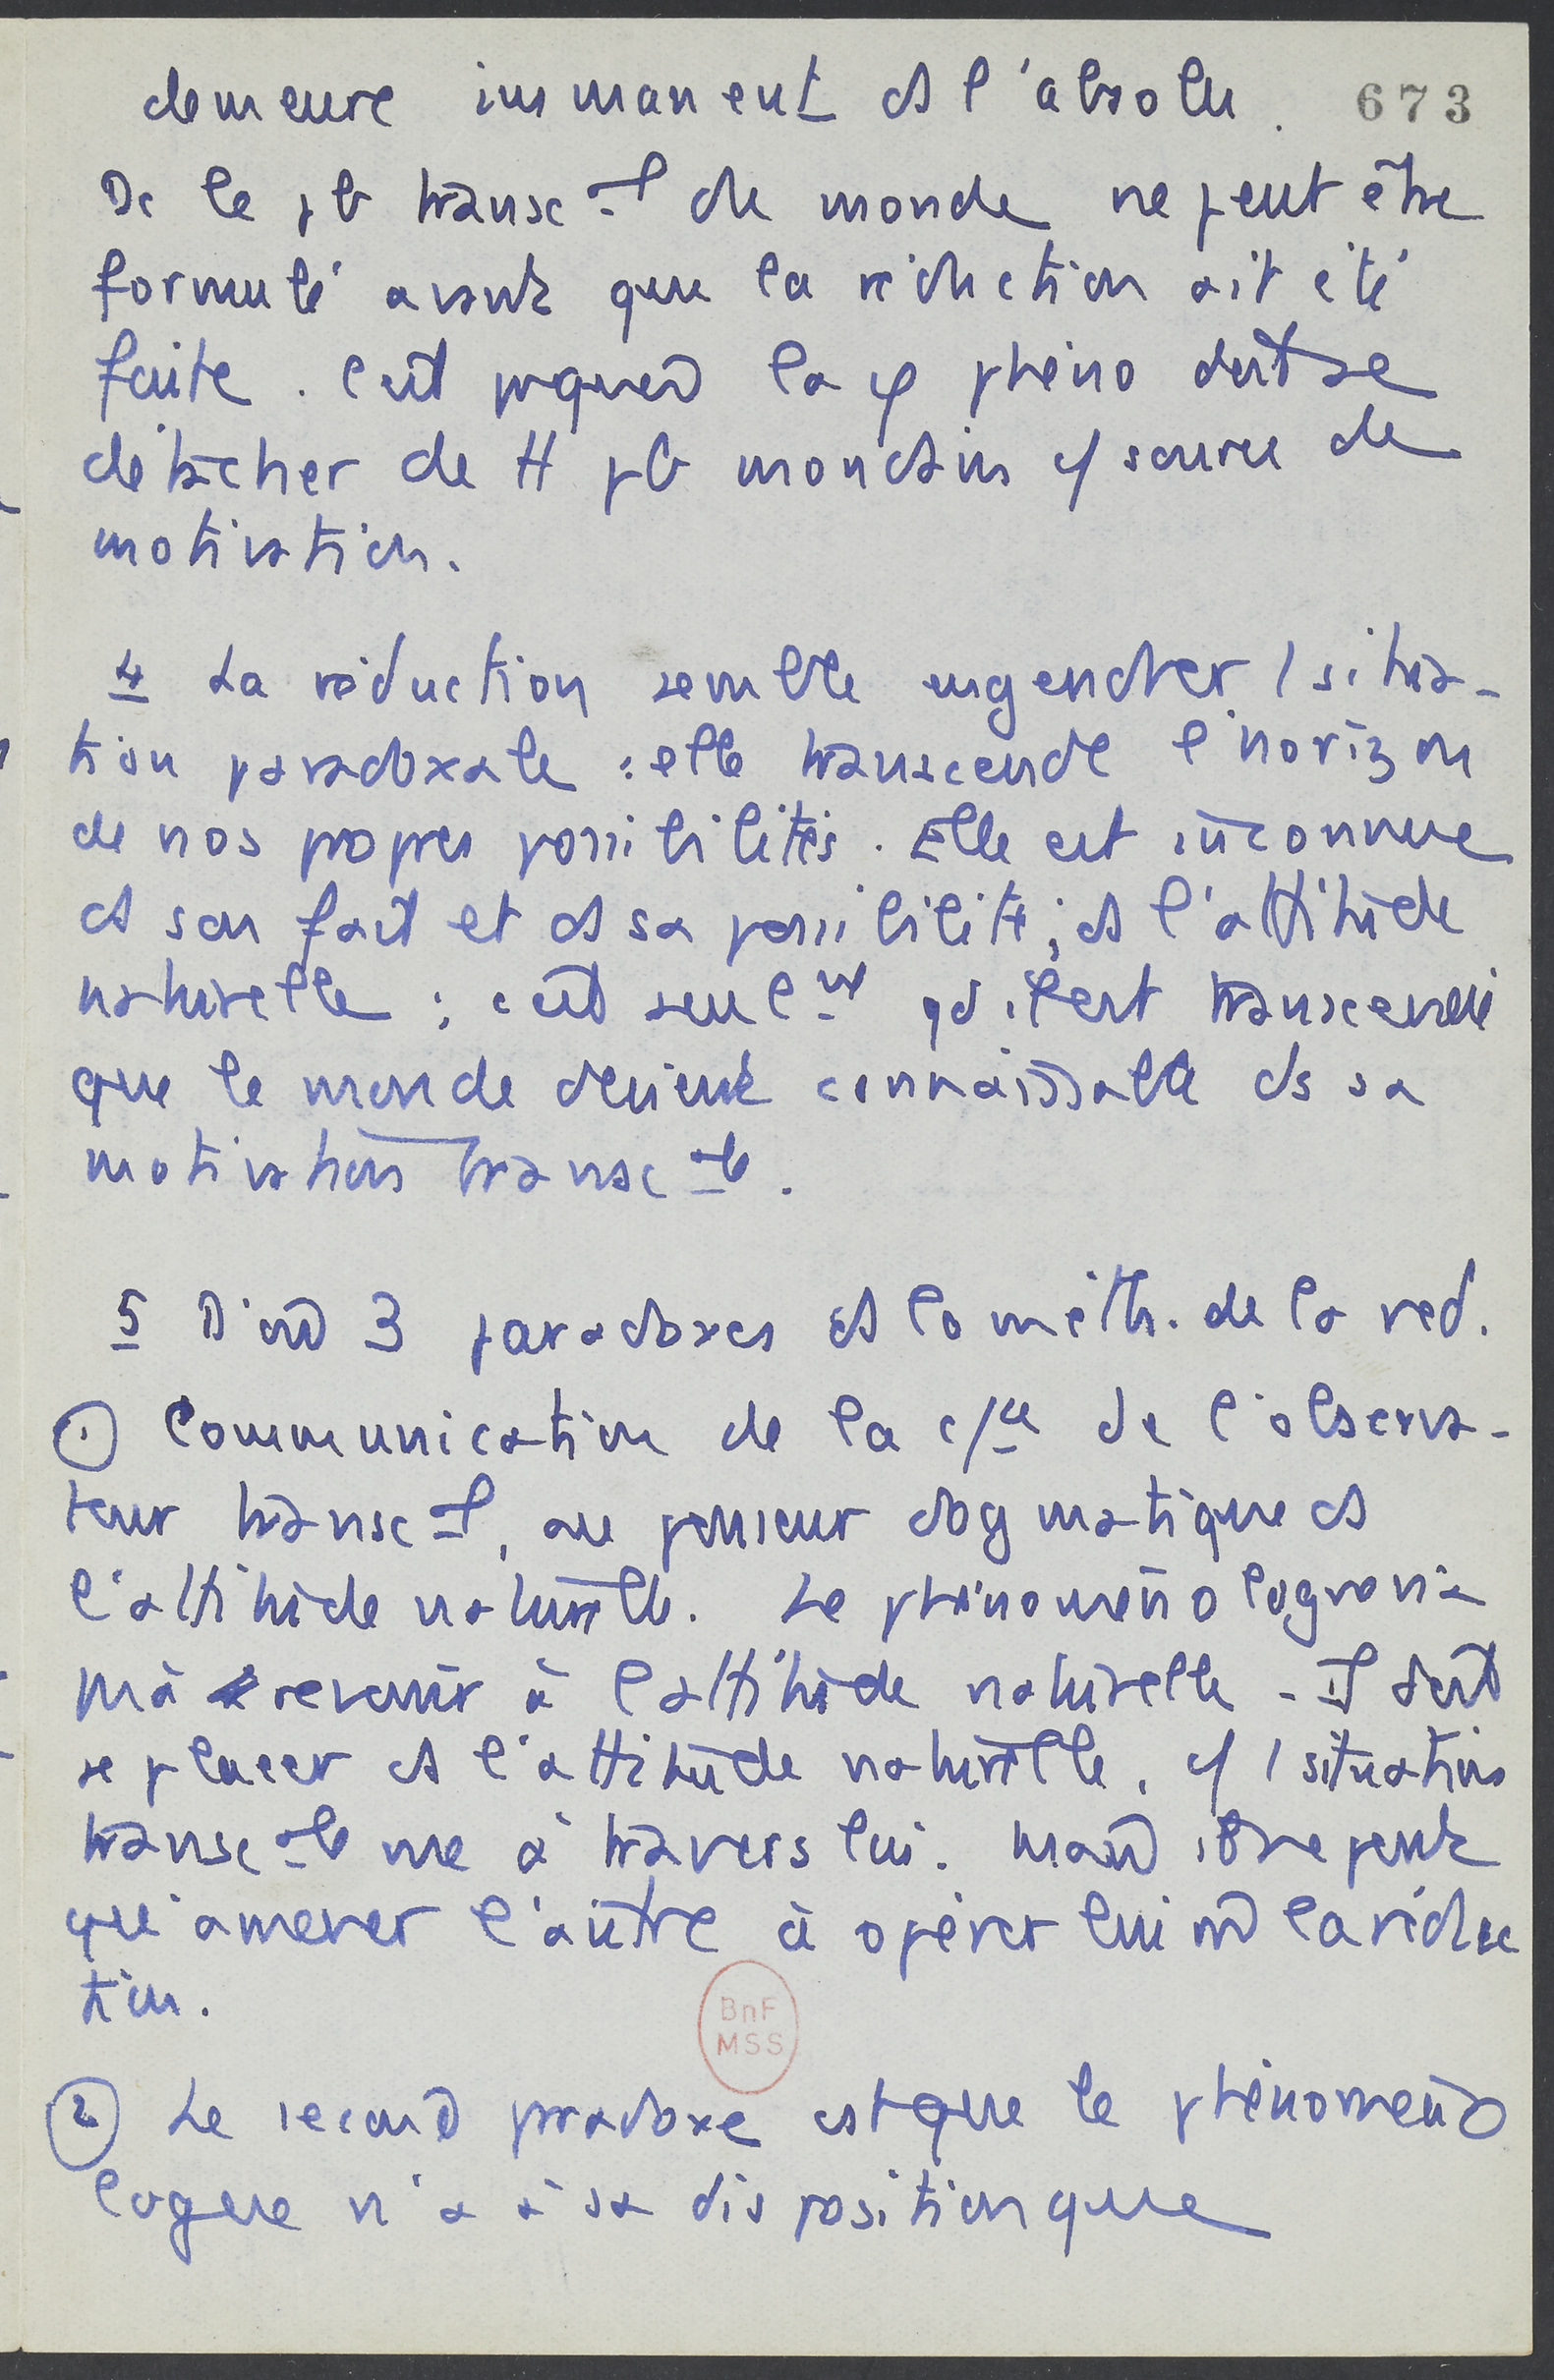 demeure immanent ds l'absolu. 673
Dc le pb transc-l du monde ne peut être
formulé avant que la réduction ait été
faite. C'est pquoi la φ phéno doit se
détacher de tt pb mondain c/ source de
motivation.
4 La réduction semble engendrer / situa-
tion paradoxale : elle transcende l'horizon
de nos propres possibilités. Elle est inconnue
ds son fait et ds sa possibilité, ds l'attitude
naturelle ; c'est seul-nt qd il est transcendé
que le monde devient connaissable ds sa
motivation transc-le.
5 D'où 3 paradoxes ds la méth. de la red.
① Communication de la c/ce de l'observa-
teur transc-l, au penseur dogmatique ds
l'attitude naturelle. Le phénoménologue n'a
pas à revenir à l'attitude naturelle - Il doit
se placer ds l'attitude naturelle, c/ / situation
transc-le vue à travers lui. Mais il ne peut
qu'amener l'autre à opérer lui m la réduc
tion.
BnF
MSS
② Le second paradoxe est que le phénoméno
logue n'a à sa disposition que